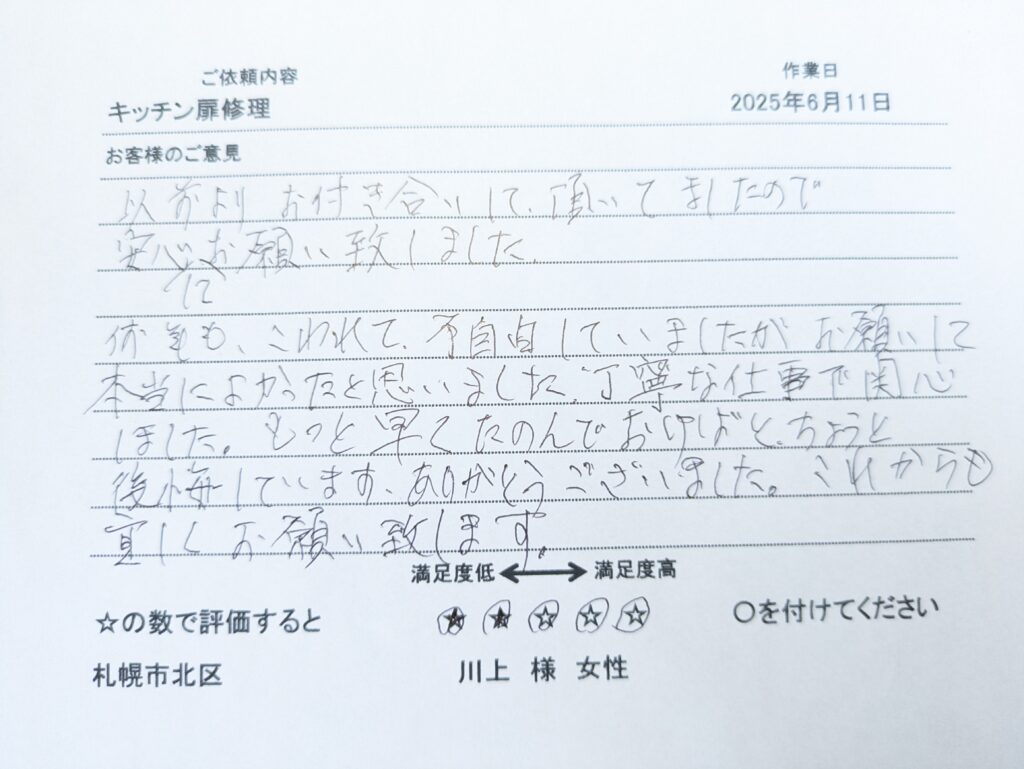 ご依頼内容
作業日
キッチン扉修理
2025年6月11日
お客様のご意見
以前より お付き合いして、頂いてましたので
安心にてお願い致しました。
何年も、こわれて、不自由していましたが お願いして
本当によかったと思いました。丁寧な仕事で関心
しました。もっと早くたのんでおけばと、ちょうと
後悔しています、ありがとうございました。これからも
宜しく お願い致します。
満足度低 ←→ 満足度高
☆の数で評価すると ★ ★ ☆ ☆ ☆ 〇を付けてください
札幌市北区 川上 様 女性